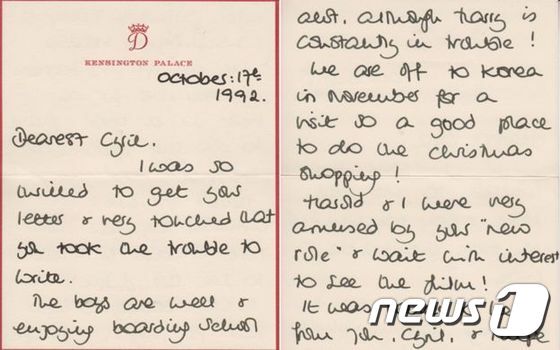 D
KENSINGTON PALACE
October: 17th
1992.
Dearest Cyril.
I was so
thrilled to get your
letter & very touched that
you took the trouble to
write.
The boys are well &
enjoying boarding school
alot, although Harry is
constantly in trouble!
We are off to Korea
in November for a
visit so a good place
to do the christmas
shopping!
Harold & I were very
amused by your "new
role" & wait with interest
to see the film!
It was
from you, Cyril, & I hope
news1